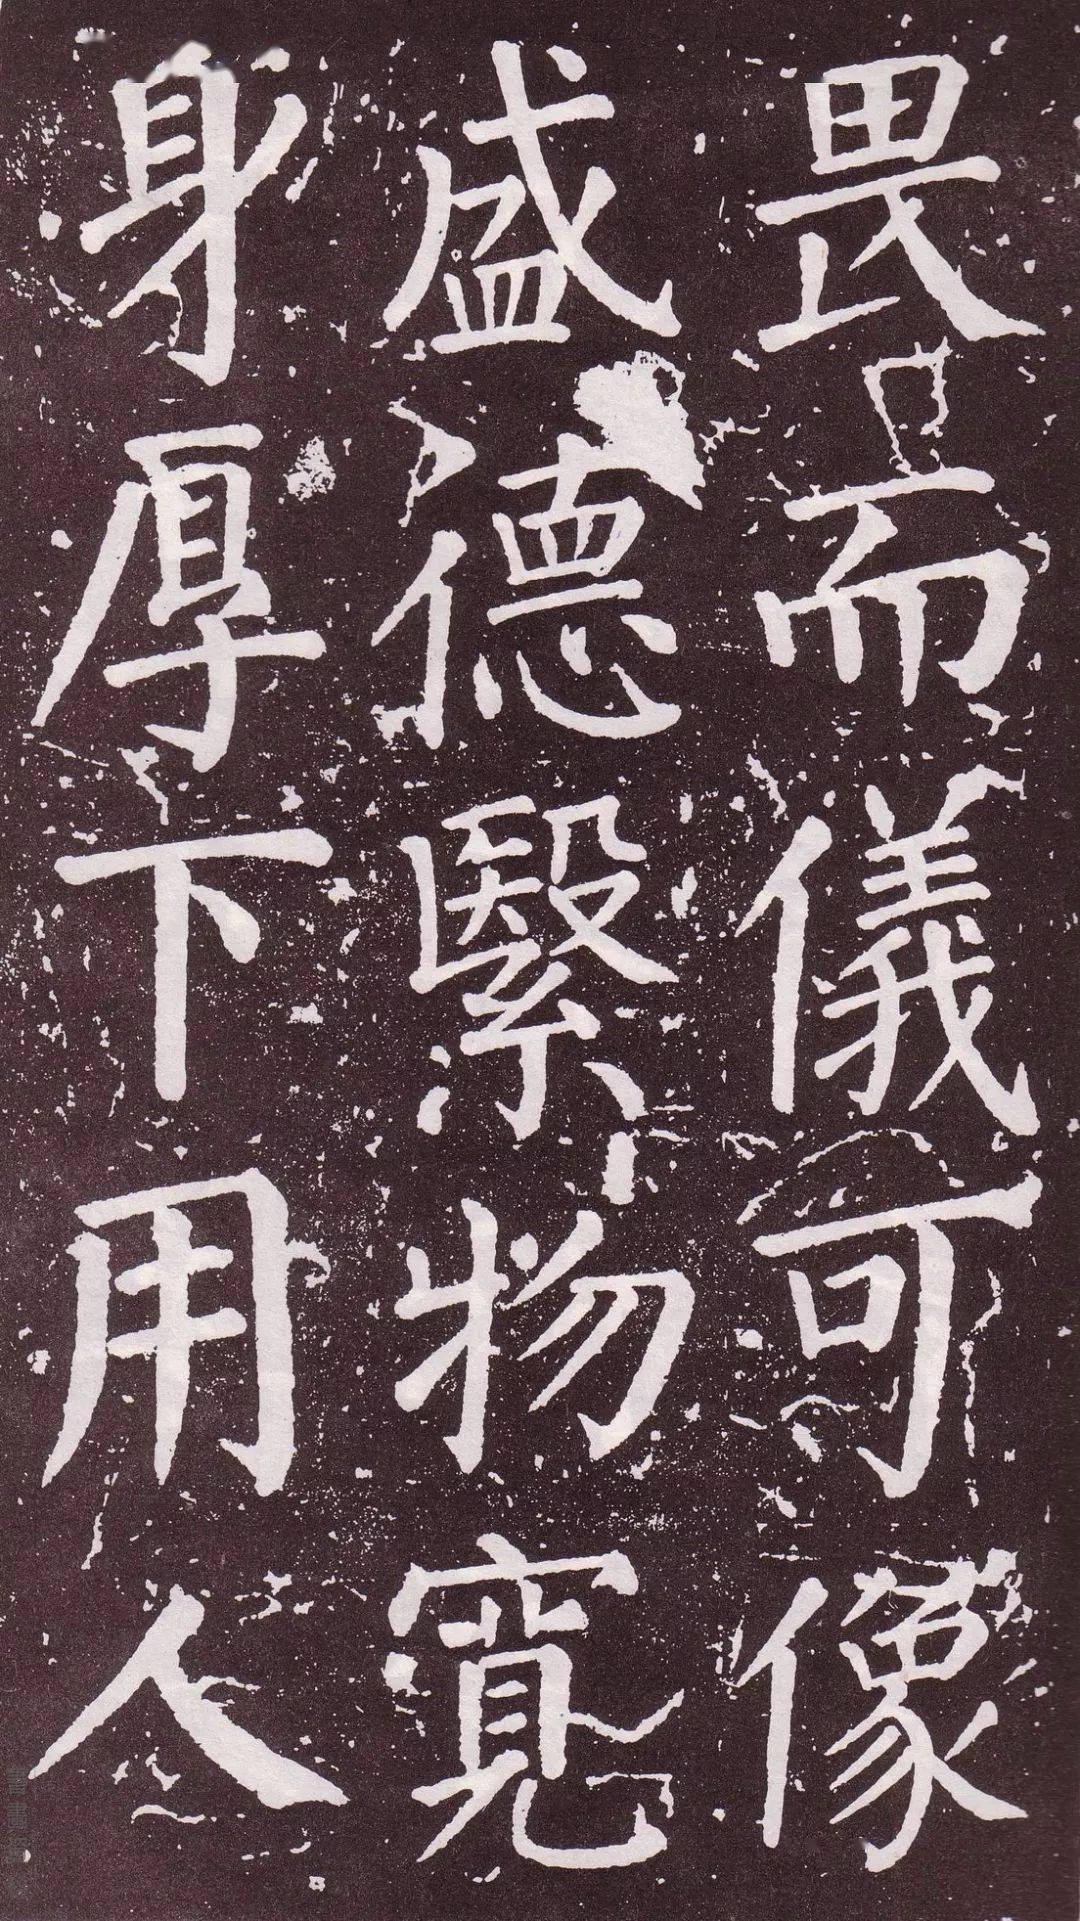 畏而儀可像
盛德緊物寬
身厚下用人